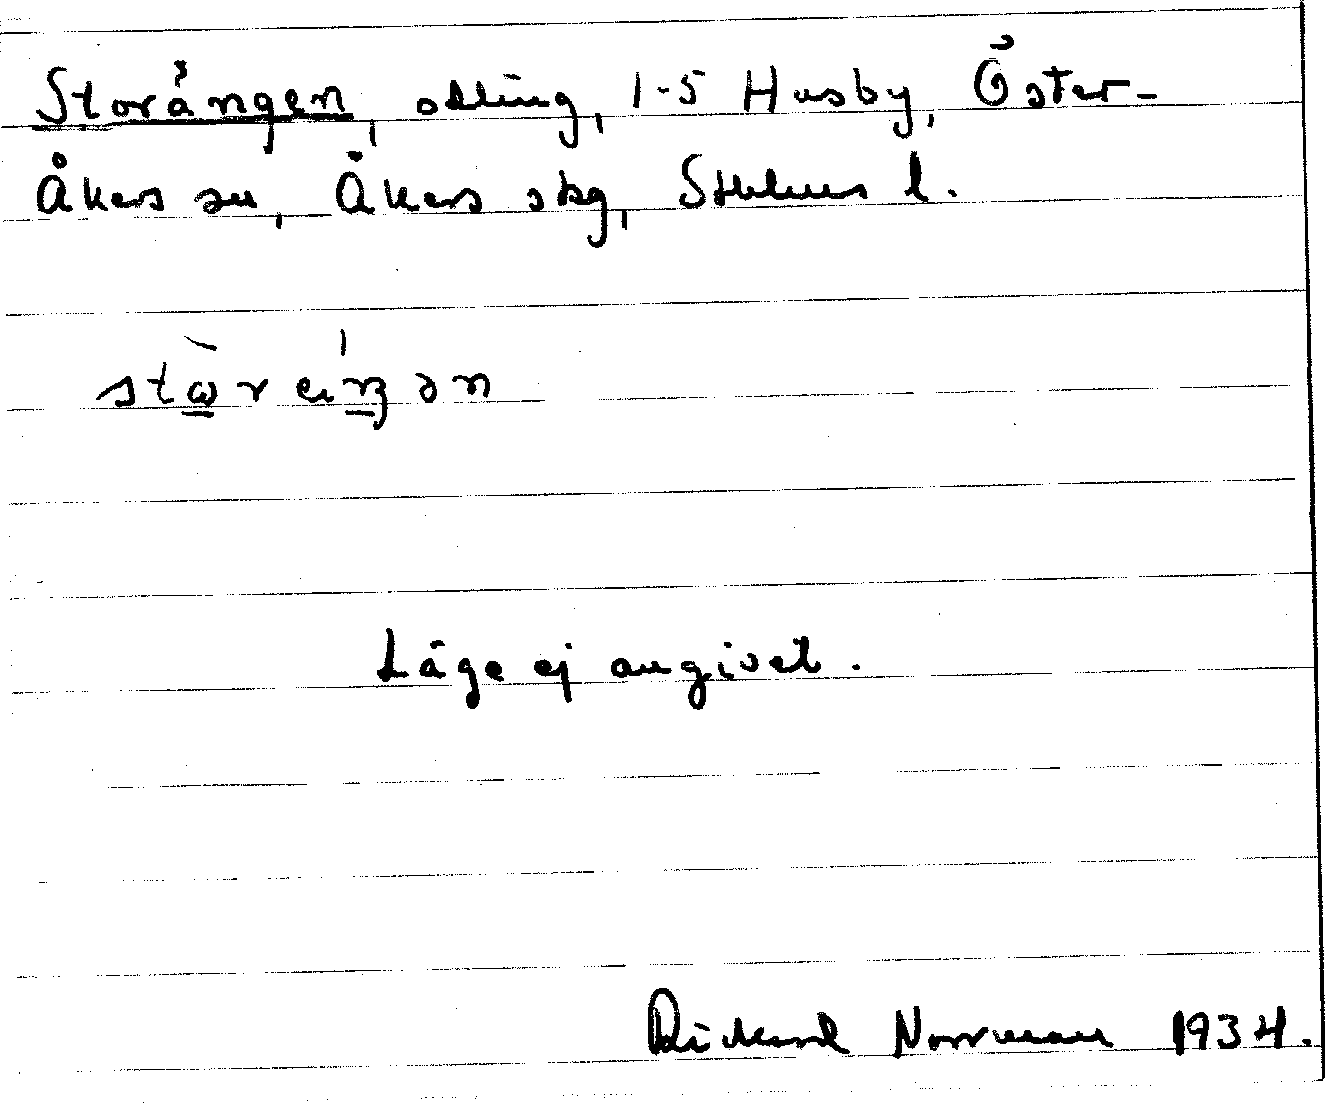 Storängen, odling, 1-5 Husby, Öster-
Åkers sn, Åkers skg, Sthlms l.
Läge ej angivet.
Rickard Norrman 1934.